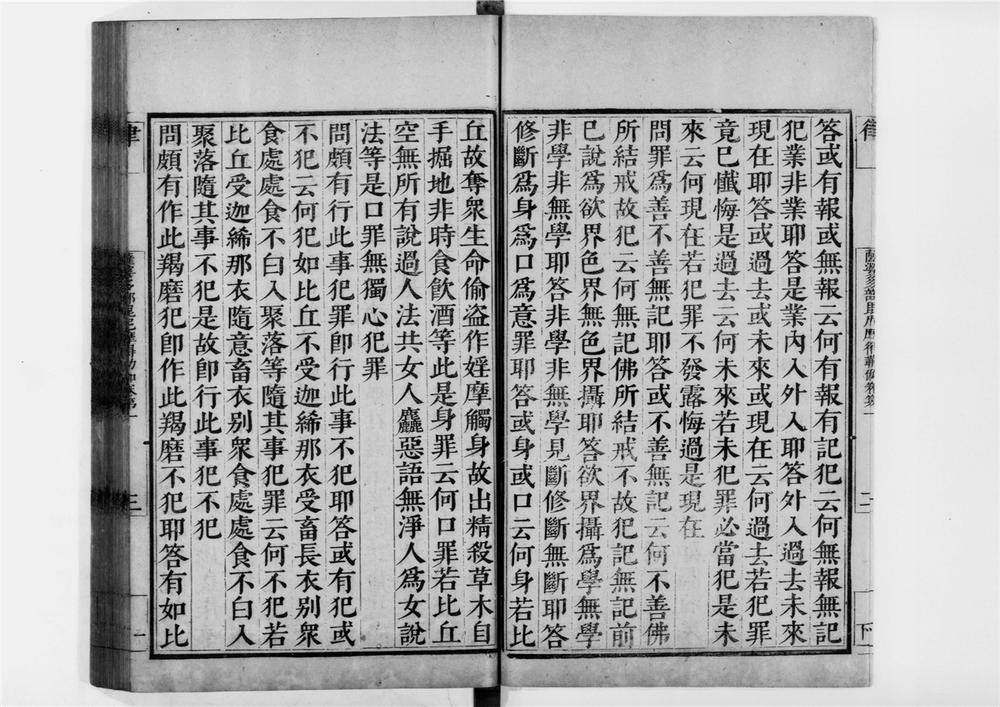 答或有報或無報云何有報有記犯云何無報無記
犯業非業耶答是業內入外入耶答外入過去未來
現在耶答或過去或未來或現在云何過去若犯罪
竟已懺悔是過去云何未來若未犯罪必當犯是未
來云何現在若犯罪不發露悔過是現在
問罪為善不善無記耶答或不善無記云何不善佛
所結戒故犯云何無記佛所結戒不故犯記無記前
已說為欲界色界無色界攝耶答欲界攝為學無學
非學非無學耶答非學非無學見斷修斷無斷耶答
修斷為身為口為意罪耶答或身或口云何身若比
丘故奪眾生命偷盜作婬摩觸身故出精殺草木自
手掘地非時食飲酒等此是身罪云何口罪若比丘
空無所有說過人法共女人麤惡語無淨人為女說
法等是口罪無獨心犯罪
問頗有行此事犯罪即行此事不犯耶答或有犯或
不犯云何犯如比丘不受迦絺那衣受畜長衣别眾
食處處食不白入聚落等隨其事犯罪云何不犯若
比丘受迦絺那衣隨意畜衣别眾食處處食不白入
聚落隨其事不犯是故即行此事犯不犯
問頗有作此羯磨犯即作此羯磨不犯耶答有如比
律
三